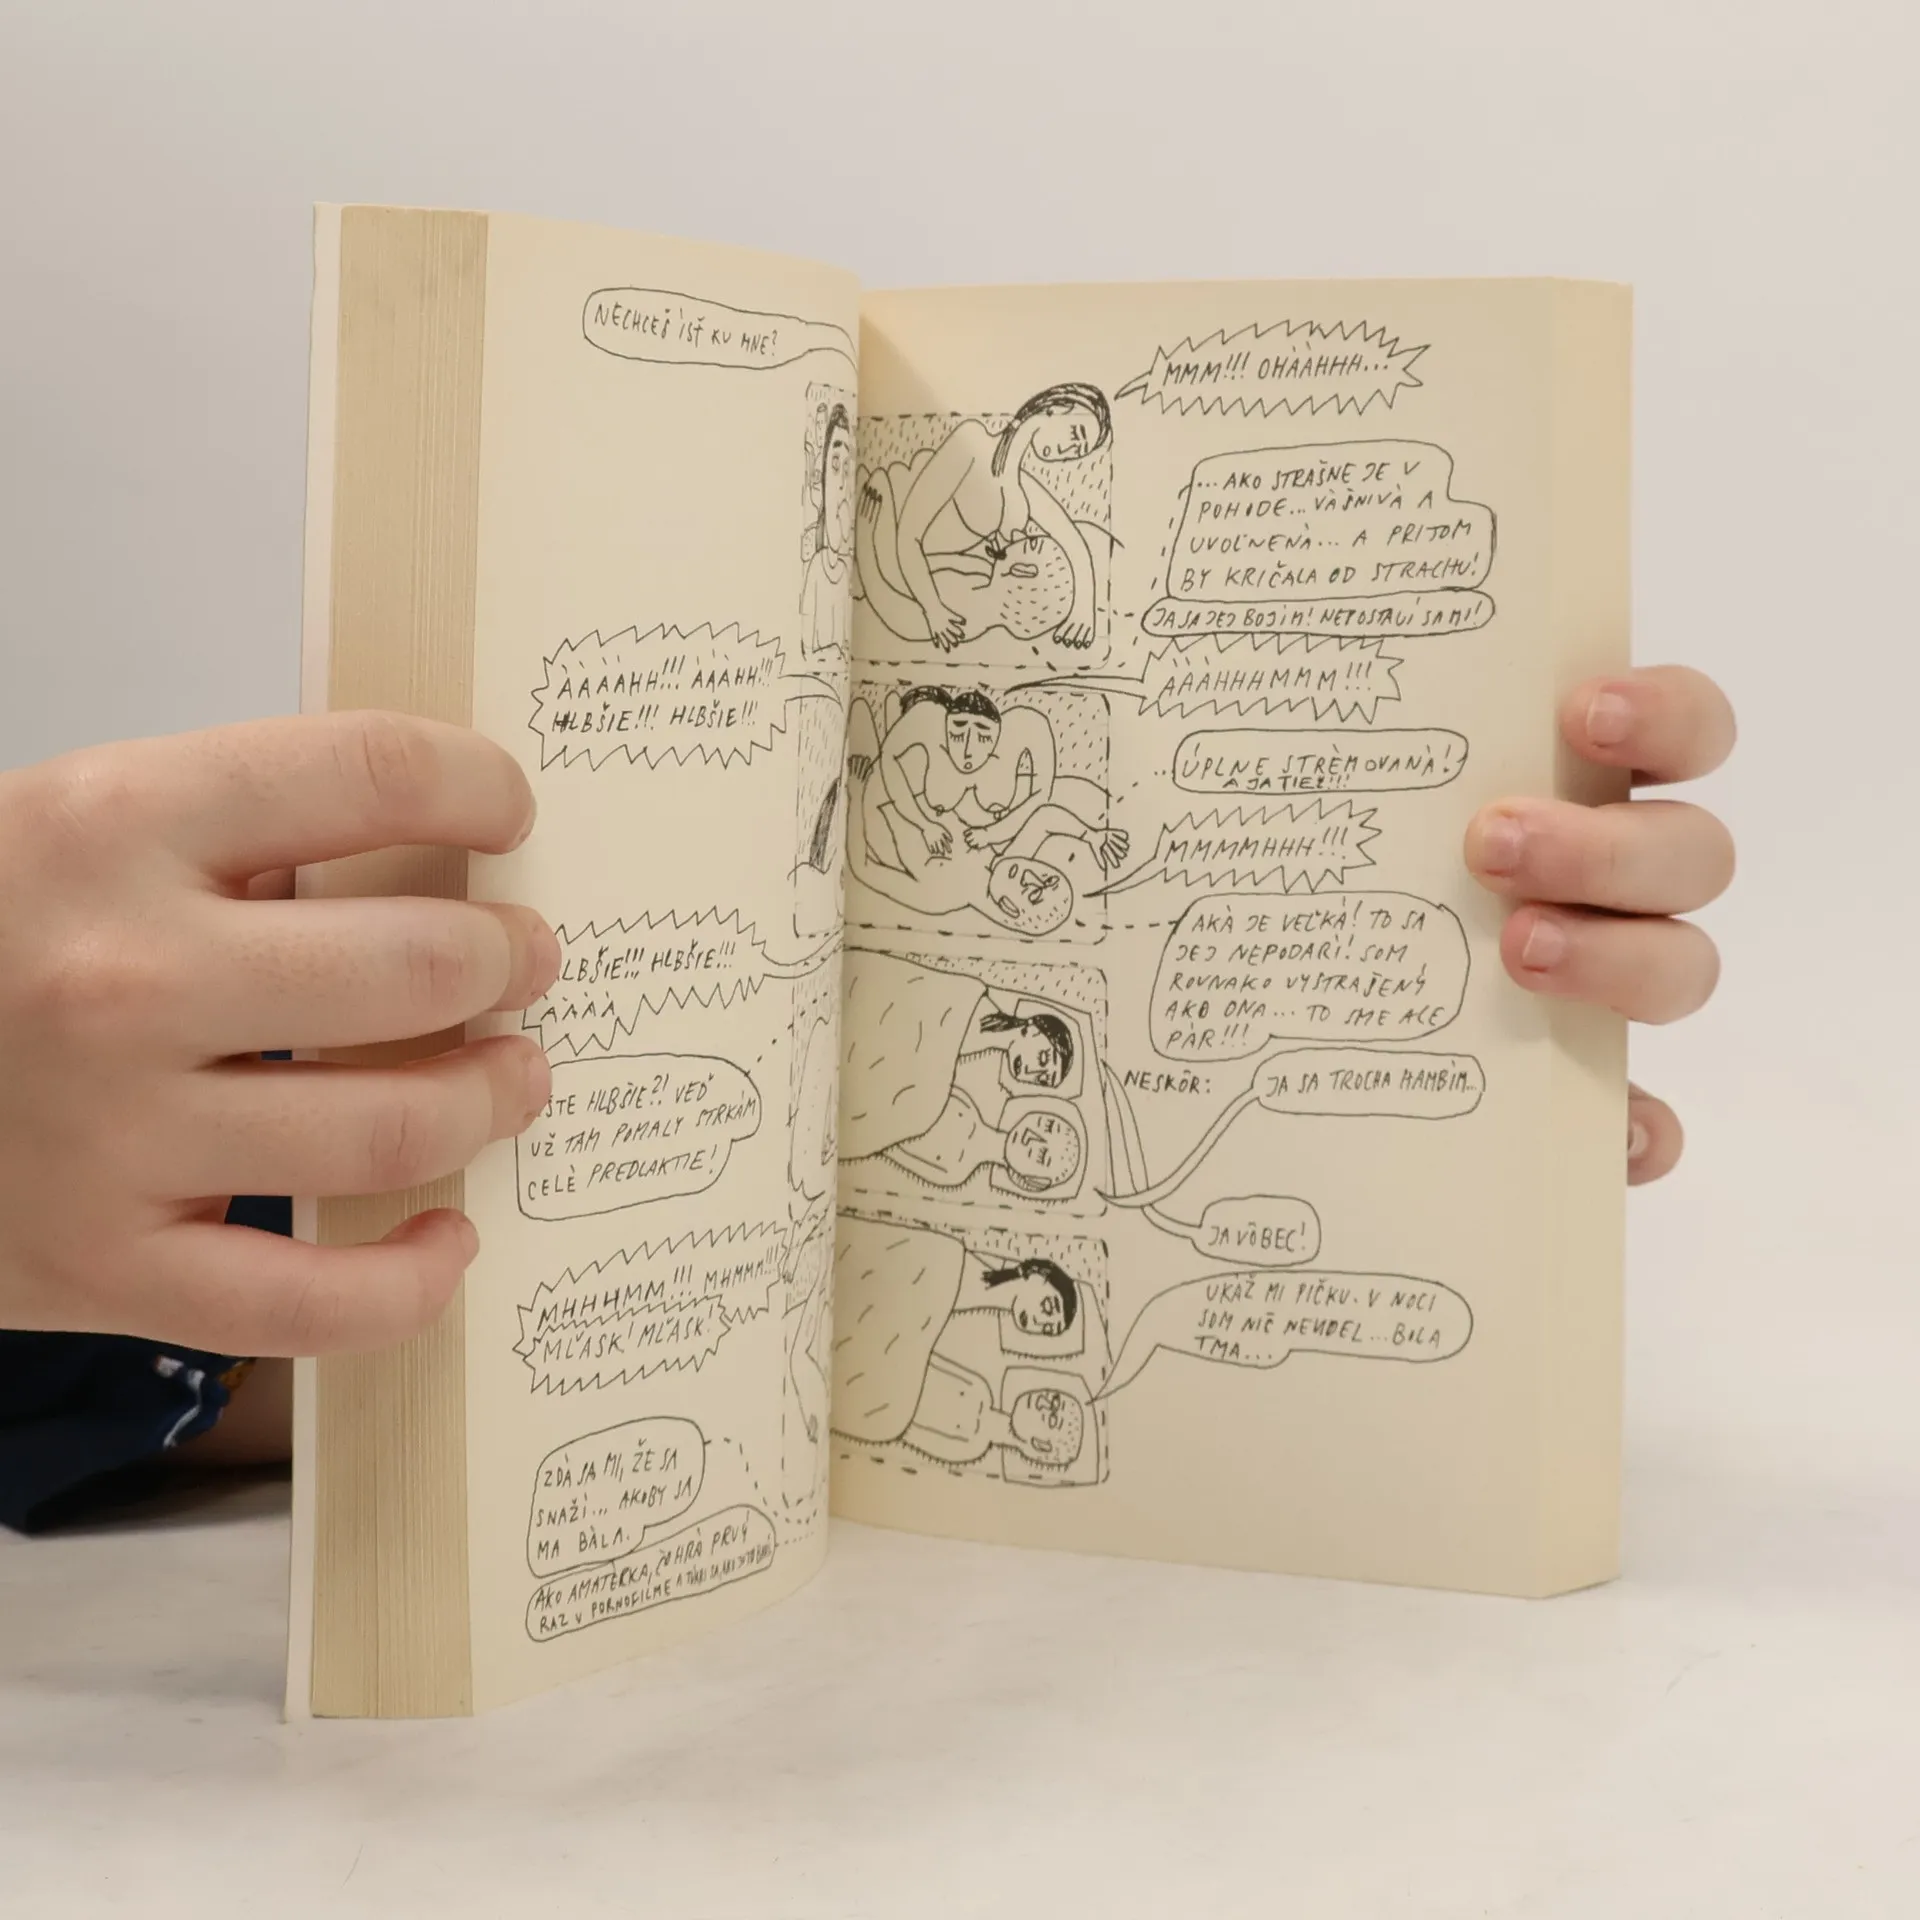 NECHCEŠ ÍSŤ KU MNE?
ÀÀÀÀHH!!! ÀÀÀHH!!!
HLBŠIE!!! HLBŠIE!!!
LBŠIE!!! HLBŠIE!!!
ÀÀÀÀ
ŠTE HLBŠIE?! VEĎ
UŽ TAM POMALY STRKÁM
CELÈ PREDLAKTIE!
MHHHMM!!! MHMMM!!!
MĽASK! MĽASK!
ZDÀ SA MI, ŽE SA
SNAŽÍ... AKOBY SA
MA BÀLA.
AKO AMATÉRKA, ČO HRÀ PRVÝ
RAZ V PORNOFILME A
MMM!!! OHÀÀHHH...
...AKO STRAŠNE JE V
POHODE... VÀŠNIVÀ A
UVOĽNENÀ... A PRITOM
BY KRIČALA OD STRACHU!
JA SA JEJ BOJÍM! NEPOSTAVÍ SA MI!
ÀÀÀHHHMMM!!!
ÚPLNE STRÈMOVANÀ!
A JA TIEŽ!!!
MMMMHHH!!!
AKÀ JE VEĽKÀ! TO SA
JEJ NEPODARÍ! SOM
ROVNAKO VYSTRAŠENÝ
AKO ONA... TO SME ALE
PÀR!!!
NESKÔR:
JA SA TROCHA HAMBÍM...
JA VÔBEC!
UKÁŽ MI PIČKU. V NOCI
SOM NIČ NEVIDEL... BOLA
TMA...